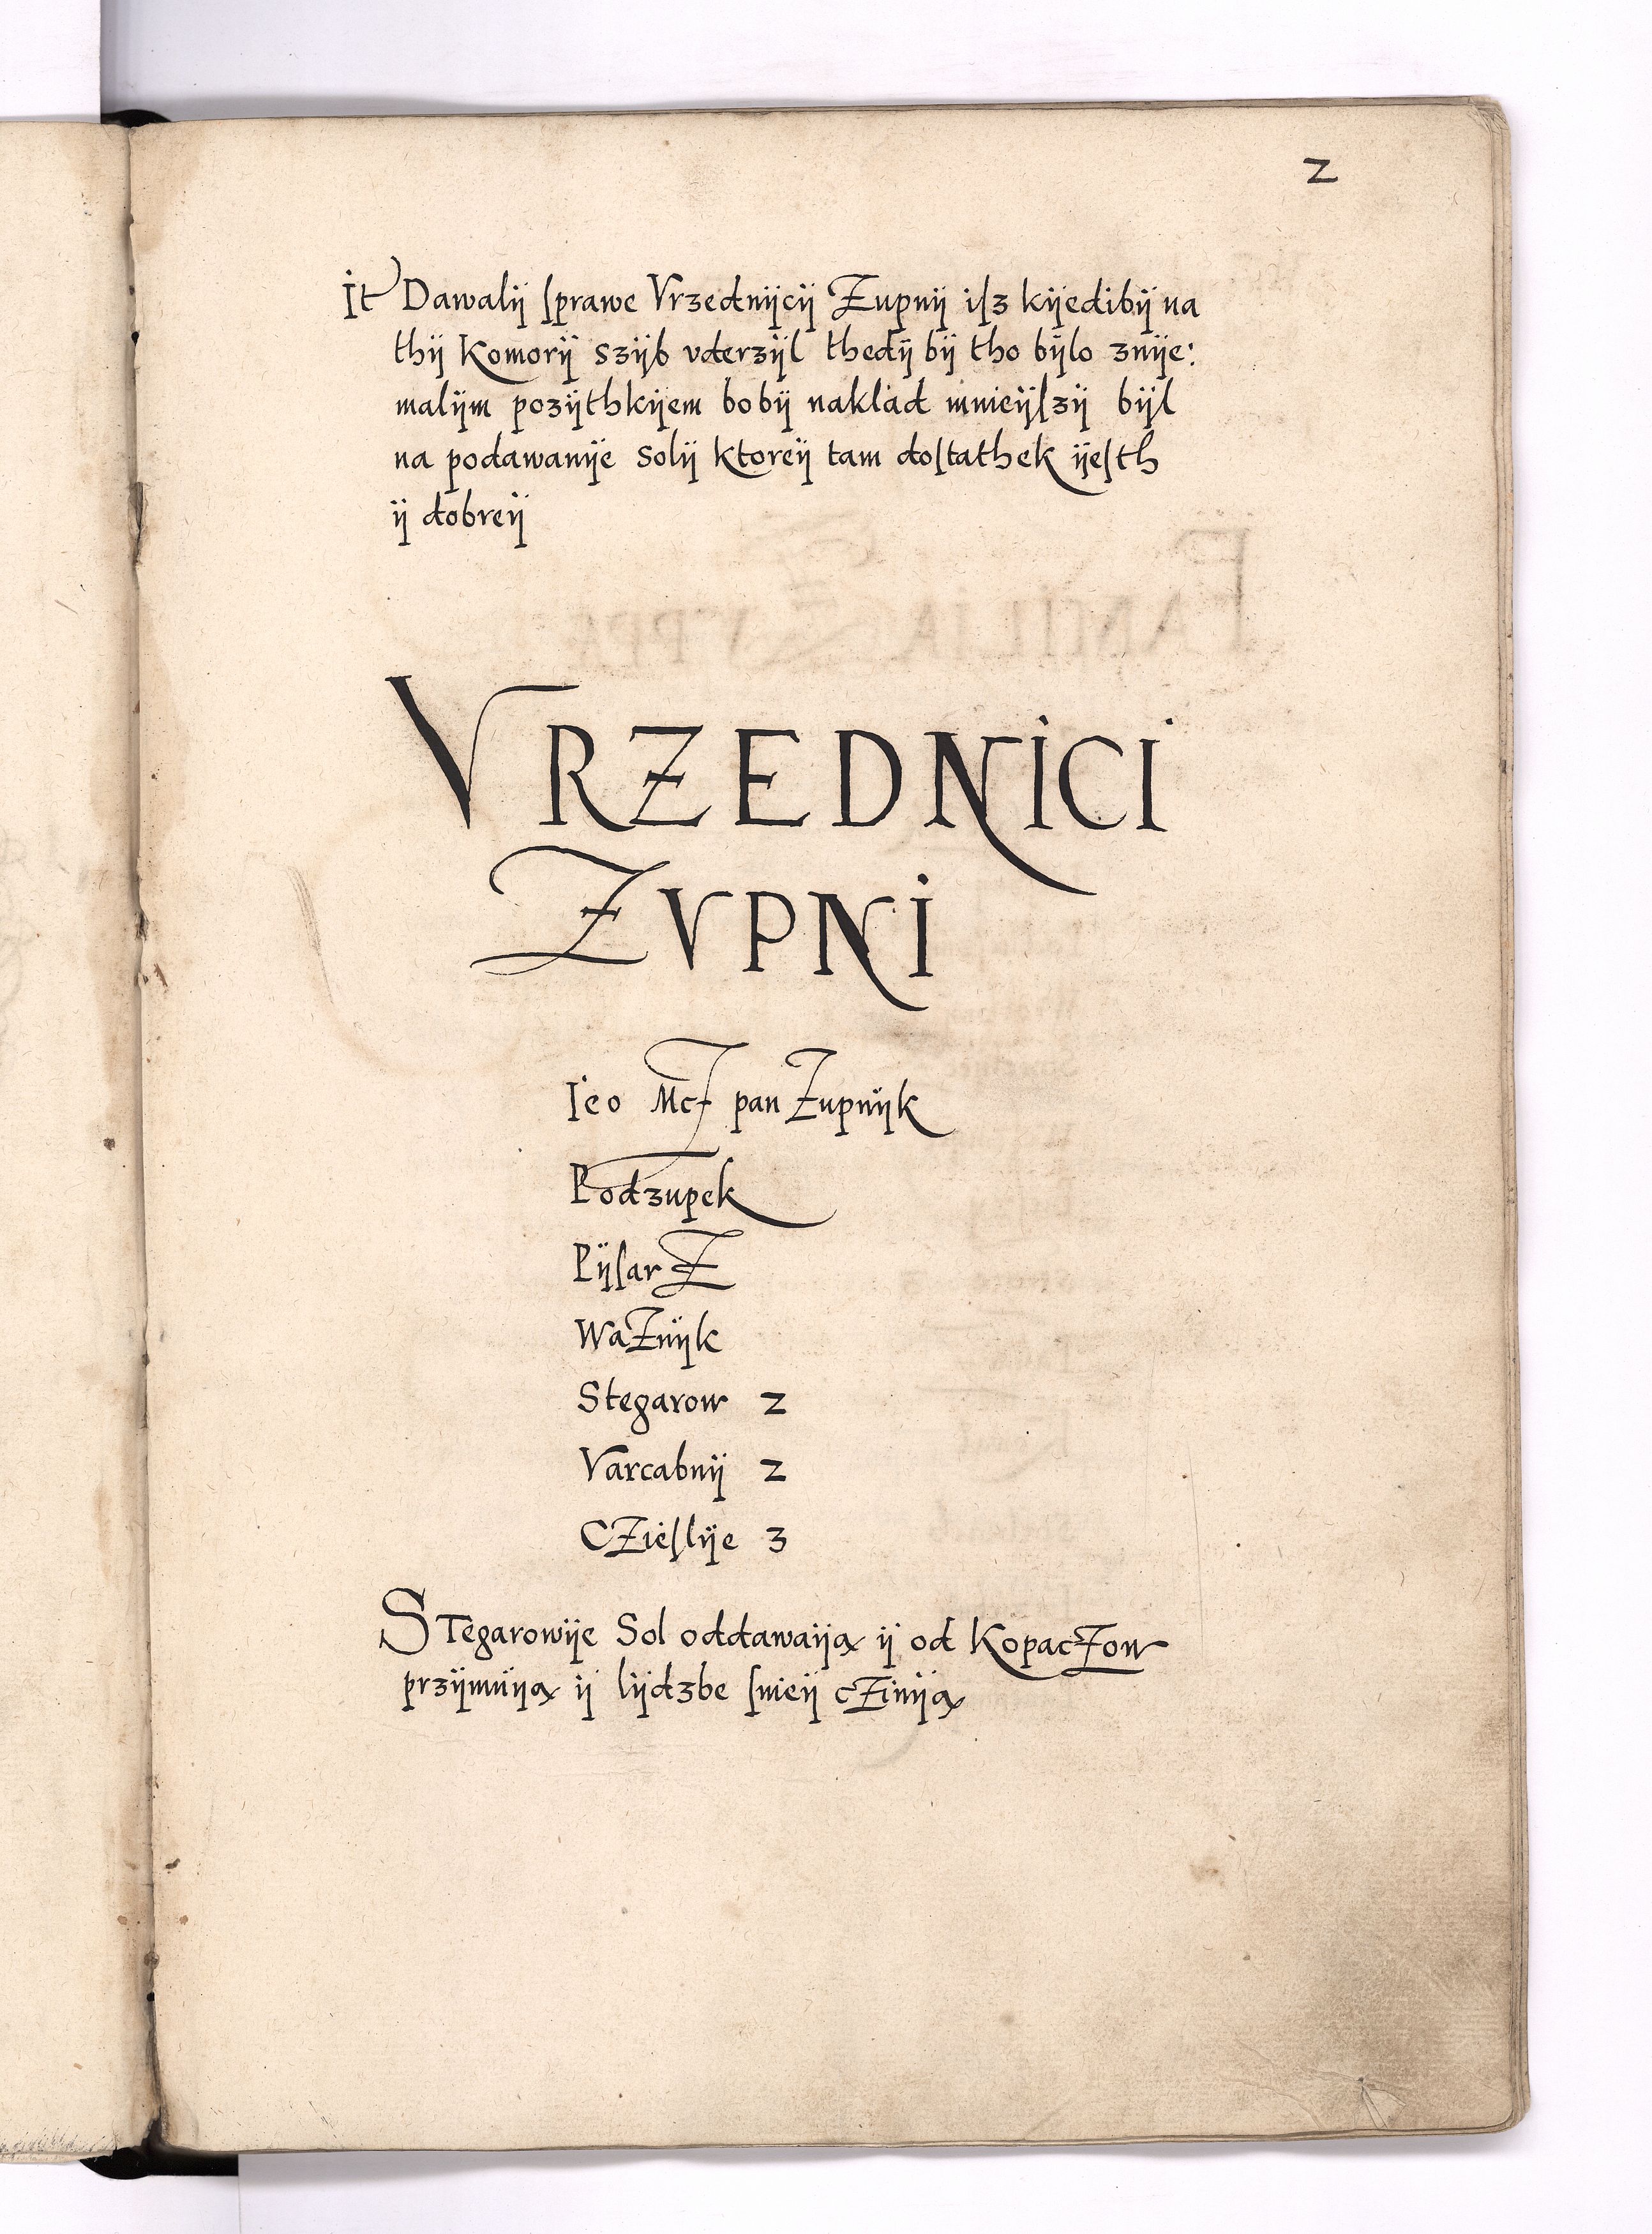 2
It Dawalÿ ſprawe Vrzednÿcÿ Zupnÿ iſz kÿedibÿ na
thÿ Komorÿ szÿb vderzÿl thedÿ bÿ tho bÿlo znÿe:
malÿm pozÿthkÿem bobÿ naklad mnieÿſzÿ bÿl
na podawanÿe Solÿ ktoreÿ tam doſtathek ÿeſth
ÿ dobreÿ
VRZEDNICI
ZVPNI
Ieo Mcz pan Zupnÿk
Podzupek
Pÿſarz
Waznÿk
Stegarow 2
Varcabnÿ 2
Czieſlÿe 3
Stegarowÿe Sol oddawaÿą ÿ od Kopaczow
przÿmuÿą ÿ lÿdzbe ſnieÿ czinÿą